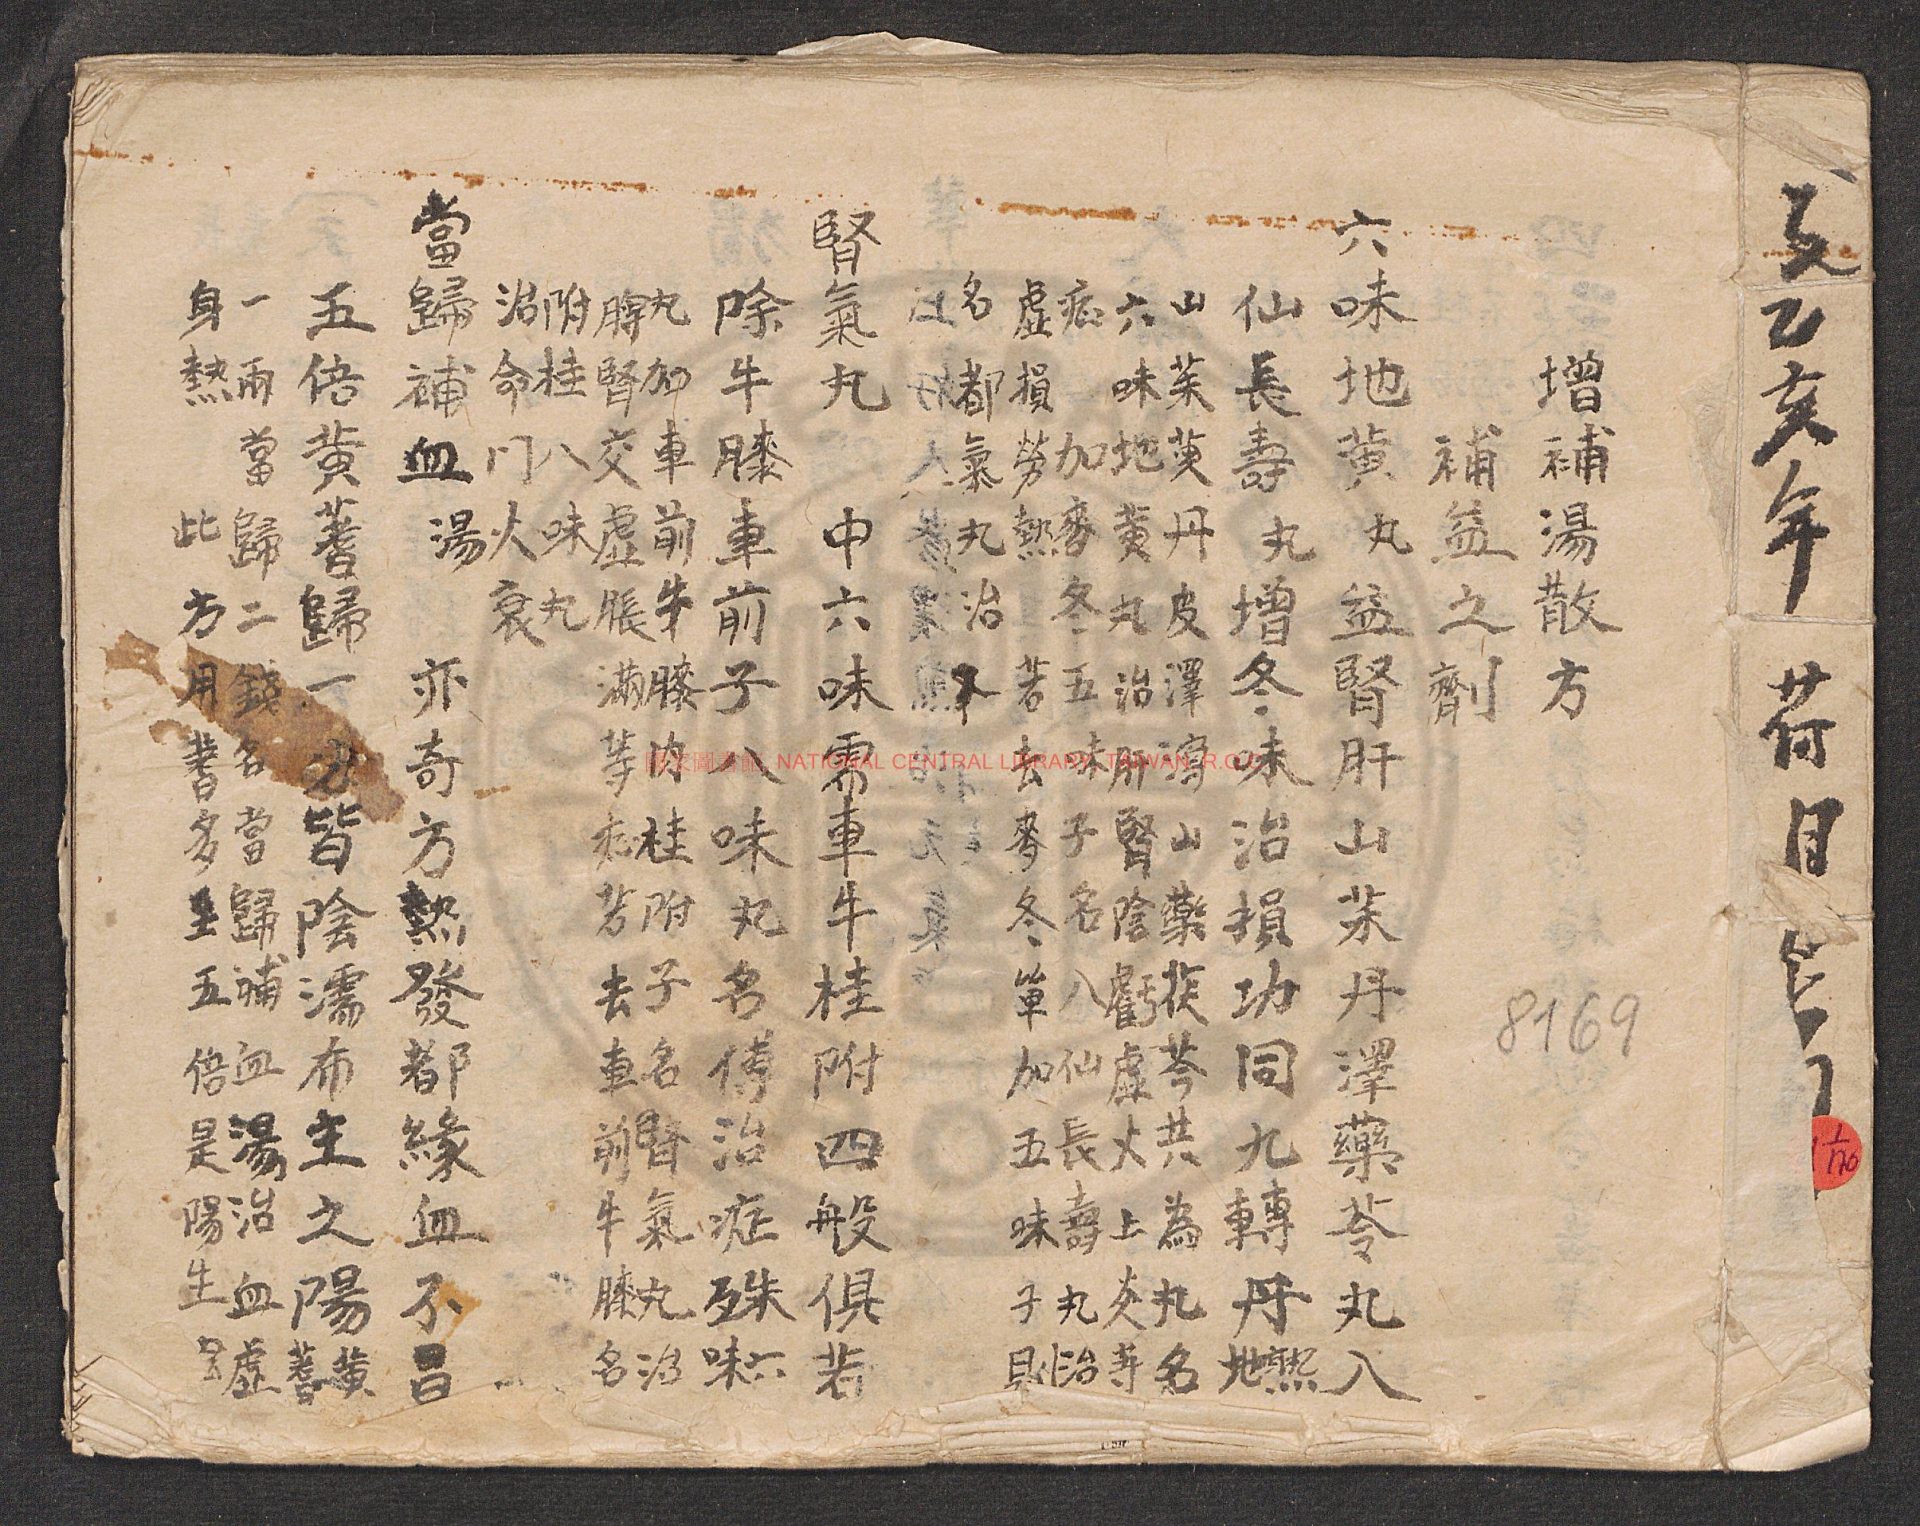 乙亥年 荷月
8169
增補湯散方
補益之劑
六味地黃丸益腎肝山茱丹澤藥苓丸八
仙長壽丸增冬味治損功同九轉丹熙地
山茱萸丹皮澤瀉山藥茯苓共為丸名
六味地黃丸治肝腎陰虧虛火上炎等
症加麥冬五味子名八仙長壽丸治
虛損勞熱若去麥冬單加五味子則
名都氣丸治
腎氣丸 中六味需車牛桂附四般俱若
除牛膝車前子八味丸名傳治症殊六味
丸加車前牛膝肉桂附子名腎氣丸治
脾腎交虛脹滿等症若去車前牛膝名
附桂八味丸
治命門火衰
當歸補血湯 亦奇方熱發都緣血不昌
五倍黃蓍歸一分皆陰濡布主之陽黃蓍
一兩當歸二錢名當歸補血湯治血虛
身熱 此方用蓍多至五倍是陽生
國家圖書館 NATIONAL CENTRAL LIBRARY, TAIWAN, R.O.C